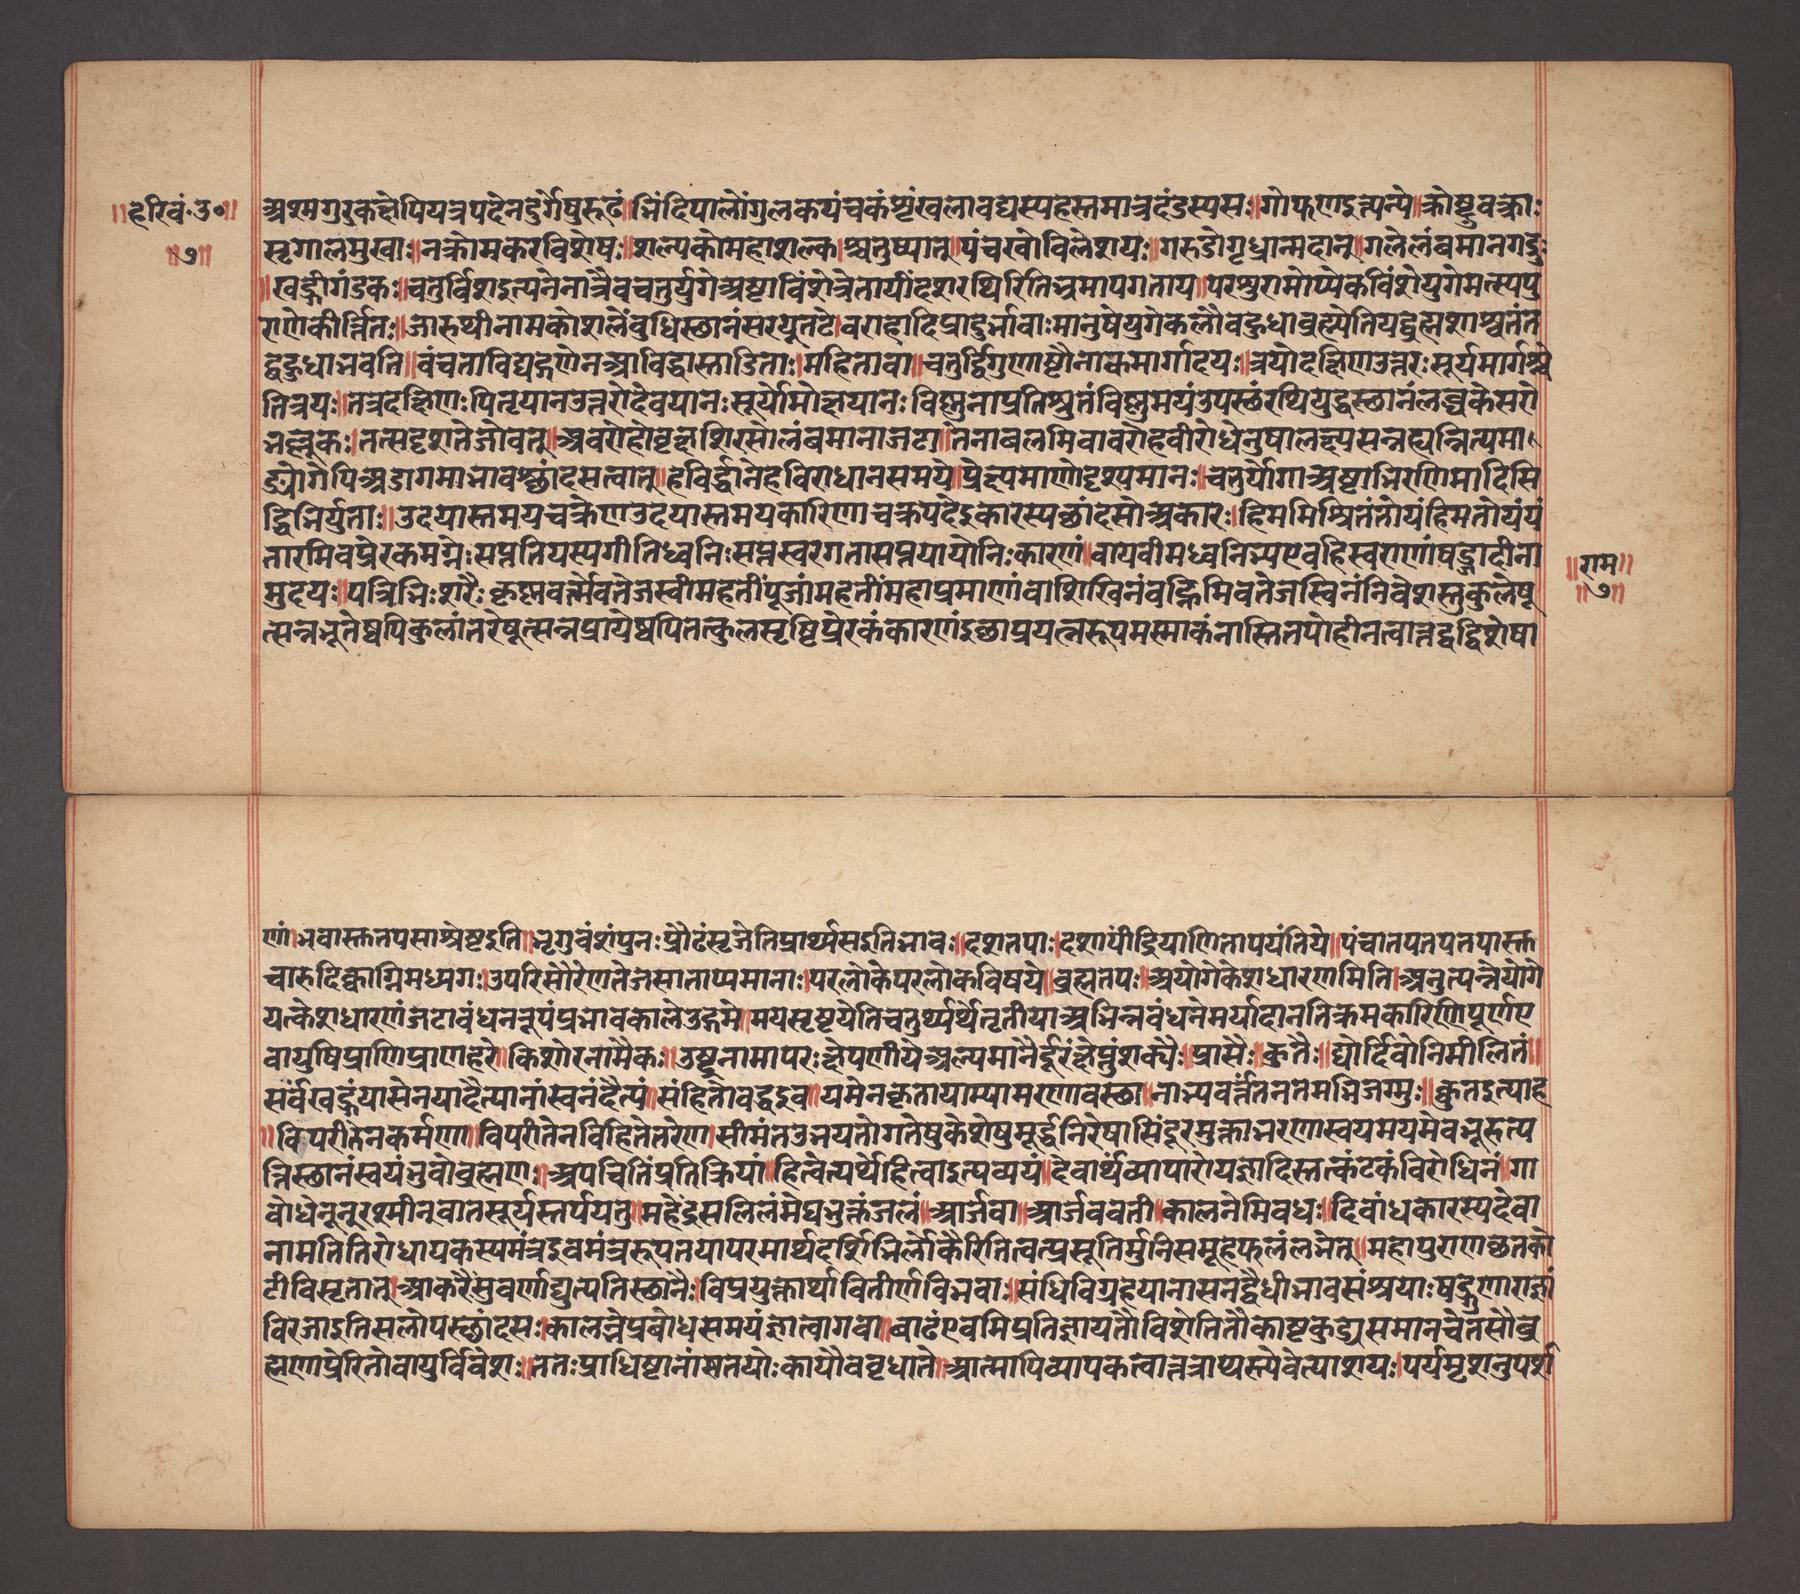 ॥हरिवं॰उ॰॥
॥७॥
अश्मगुडकल्हेपियत्रपदेनदुर्गेषुरूढं॥भिंदिपालोंगुलकयंचकंशृंखलावद्यस्यहस्तमात्रदंडस्यस॥गोफणइत्यन्ये॥क्रोष्टुवक्राः
सृगालमुखाः॥नक्रोमकरविशेषः॥शल्पकोमहाशल्क।श्चतुष्पात्॥पंचरवोविलेशयः॥गरुडोगृध्रान्मदान्॥गलेलंबमानगडुः
॥खड्गीगंडकः॥चतुर्विंशइत्यनेनात्रैवचतुर्युगेअष्टाविंशेत्रेतायांदशरथिरितिभ्रमापगताय॥परशुरामोप्येकविंशेयुगेमत्स्यपु
राणेकीर्त्तितः॥जारुथीनामकोशलेंबुधिस्छानंसरयूतटे।वराहादिप्रादुर्भावाःमानुषेयुगेकलौबहुधाब्रह्मेतियद्ब्रह्मशाश्वतंत
द्बहुधाभवति॥वंचताविद्यद्गणेनआविद्धास्ताडिताः॥महितावा॥चतुर्द्विगुणाष्टौनाकमार्गादयः॥त्रयोदक्षिणउत्तरःसूर्यमार्गश्चे
तित्रयः॥तत्रदक्षिणःपितृयानउत्तरोदेवयानःसूर्योमोक्षयानःविष्णुनाप्रतिश्रुतंविष्णुमयंउपस्छंरथियुद्धस्छानंलब्धकेसरो
भल्लूकः॥तत्सदृशतेजोवत्॥अवरोहोवृक्षशिरसोलंबमानाजटा॥तेनाबलमिवावरोहवीरोधेनुषालक्ष्यसन्नह्यन्नित्यमा
ङ्योगेपिअडागमाभावश्छांदसत्वात्॥हविर्द्धानेहविराधानसमये॥प्रेक्ष्यमाणोदृश्यमानः॥चतुर्योगाअष्टाभिरणिमादिसि
द्धिभिर्युताः॥उदयास्तमयचक्रेणउदयास्तमयकारिणाचक्रपदेइकारस्यछांदसोअकारः॥हिममिश्रितंतोयंहिमतोयंयं
तारमिवप्रेरकमग्नेःसप्ततियस्यगीतिध्वनिःसप्तस्वरगतासप्तयायोनिःकारणं॥वायवीमध्वनिभ्यएवहिस्वराणांषड्जादीना
मुदयः॥पत्रिभिःशरैःकृष्णवर्त्मेवतेजस्वीमहतींपूजांमहतींमहाप्रमाणांवाशिखिनंवह्निमिवतेजस्विनंनिवेशस्तुकुलेषू
त्सन्नभूतेष्वपिकुलांतरेषूत्सन्नप्रायेष्वपितत्कुलसृष्टिप्रेरकंकारणंइछाप्रयत्नरूपमस्माकंनास्तितपोहीनत्वात्तद्वद्विशेषा
॥राम॥
॥७॥
णां॥भवास्ततपसाश्रेष्टइति॥भृगुवंशंपुनःप्रौढंसृजेतिप्रार्थ्यसइतिभावः॥दशतपाः।दशायींद्रियाणितापयंतिये॥पंचातपतपतपास्त
चारुदिक्वाग्निमध्यगः॥उपरिसौरेणतेजसाताप्यमानाः॥परलोकेपरलोकविषये॥ब्रह्मतपः॥अयोगेकेशधारणमिति॥अनुत्पन्नेयोगे
यत्केशधारणंजटाबंधननूपंप्रभावकालेउद्गमे॥मयसृष्टयेतिचतुर्थ्यर्थेतृतीयाअभिन्नबंधनेमर्यादानतिक्रमकारिणिपूर्णए
वायुषिप्राणिप्राणहरे॥किशोरनामैकः॥उष्ट्रनामापरःक्षेपणीयेअल्पमानैर्दूरंक्षेप्तुंशक्यैः॥प्रासैः॥क्रुतैः॥द्योर्दिवोनिमीलितं॥
सर्वखङ्गंयासेनयादैत्यानांस्वनंदैत्यं॥संहितोवद्धइव॥यमेनकृतायाम्यामरणावस्छा॥नाभ्यवर्त्ततनतमभिजग्मुः॥क्रुतइत्याह
॥विपरीतेनकर्मणा॥विपरीतेनविहितेतरेण॥सीमंतउभयतोगतेषुकेशेषुमूर्द्धनिरेषासिंदूरमुक्ताभरणास्वयमयमेवभूरुत्प
त्तिस्छानंस्वयंभुवोब्रह्मणः॥अपचितिंप्रतिक्रियां॥हित्वेत्यर्थेहित्वाइत्यव्ययं॥देवार्थंव्यापारोयज्ञादिस्तत्कंटकंविरोधिनं॥गा
वोधेनूनुरश्मीनुवातसूर्यस्तर्पयतु॥महेंद्रसलिलंमेघभुक्तंजलं॥आर्जवा॥आर्जववती॥कालनेमिवधः॥दिवांधकारस्यदेवा
नामतितिरोधायकस्यमंत्रइवमंत्ररूपतयापरमार्थदर्शिभिर्लोकैरितित्वत्प्रसूतिर्मुनिसमूहेफलंलभेत्॥महापुराणछतको
टीविसृतात्॥आकरैःसुवर्णाद्युत्पतिस्छानैः॥विप्रयुक्तोर्थावितीर्णविभवाः॥संधिविग्रहयानासनद्वैधीभावसंश्रयाःषड्गुणाराज्ञां
विरजाइतिसलोपस्छांदसः॥कालत्रेप्रबोधसमयंज्ञात्वागवा॥बाढंएवमिप्रतिज्ञायतौविशेतितौकाष्टकुड्यसमानचेतसौब्र
ह्मणाप्रेरितोवायुर्विवेशः॥ततःप्राधिष्टानांसतयोःकायौववृधाते॥आत्मापिव्यापकत्वात्तत्राप्यस्त्येवेत्याशयः॥पर्यमृशनुपर्श